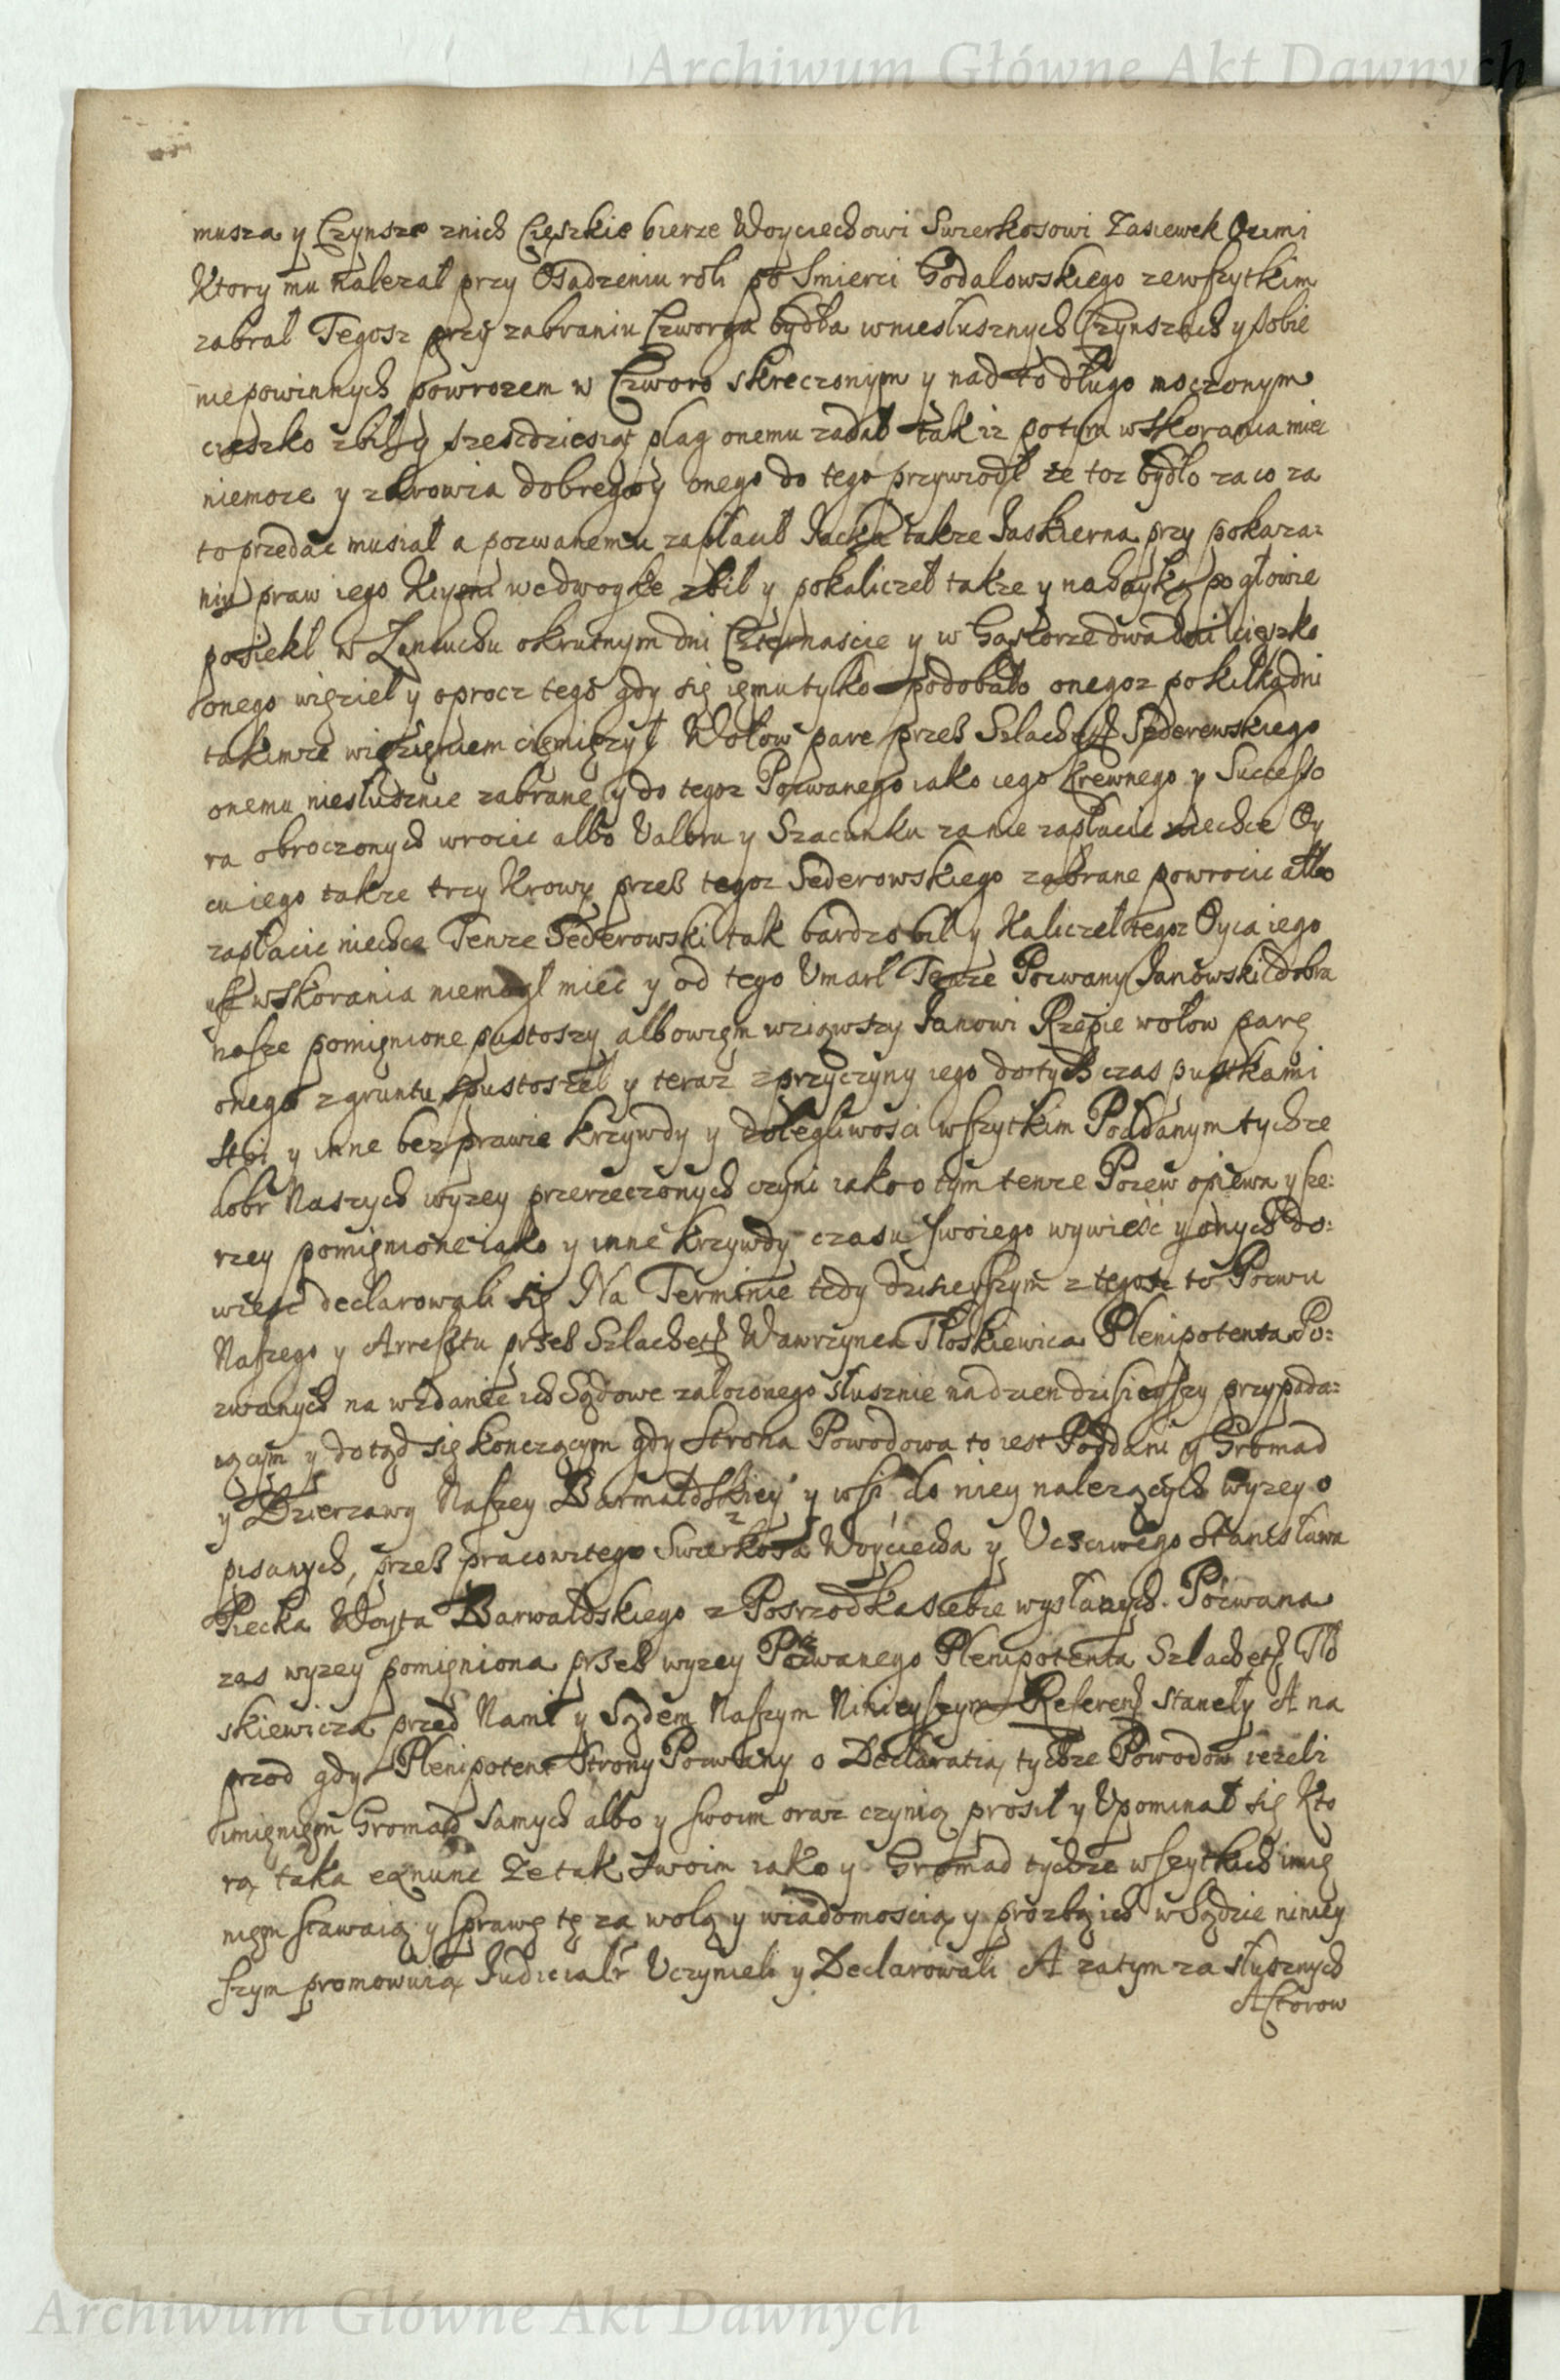 Archiwum Główne Akt Dawnych
musza y Czynsze znich Cięszkie bierze Woyciechowi Swierkosowi Zasiewek Ozimi
Ktory mu nalezał przy Osadzeniu roli po Smierci Godalowskiego zewszytkim
zabrał Tegosz przy zabraniu Czworga bydła wniesłusznych Czynszach y sobie
niepowinnych powrozem w Czworo skreczonym y nad to długo moczonym
cieszko zbił y szescdziesiąt plag onemu zadał tak iz potym wskorania miec
niemoze y zdrowia dobrego y onego do tego przywiodł ze toz bydło za co za
to przedac musiał a pozwanemu zapłacił Jacka takze Jaskierna przy pokaza:
niu praw iego Kiymi wedwoyke zbił y pokaliczeł takze y nadziyką po głowie
posiekł w Łancuchu okrutnym dni Czternascie y w Gąsiorze dwa dni cięszko
onego więzieł y oprocz tego gdy się iemu tylko podobało onegoz po kilka dni
takimze więzięniem ciemięzył Wołow pare przes Szlachet Sederewskiego
onemu niesłusznie zabrane y do tegoz Pozwanego iako iego Krewnego y Successo
ra obroczonych wrocic albo Valoru y Szacunku za nie zapłacic niechce Oy
cu iego takze trzy Krowy przes tegoz Sederowskiego zabrane powrocic albo
zapłacic niechce Tenze Sederowski tak bardzo bił y Kaliczeł tegoz Oyca iego
isz wskorania niemogł miec y od tego Vmarł Tenze Pozwany Janowski dobra
nasze pomięnione pustoszy albowięm wziąwszy Janowi Rzepie wołow parę
onego zgruntu spustoszeł y teraz z przyczyny iego dotych czas pustkami
stoi y inne bezprawie krzywdy y dolegliwosci wszytkim Poddanym tychze
dobr Naszych wyzey przerzeczonych czyni iako o tym tenze Pozew opiewa y sze:
rzey pomięnione iako y inne krzywdy czasu swoiego wywiesć y onych do:
wiesć declarowali się Na Terminie tedy dzisieyszym z tegosz to Pozwu
Naszego y Arresztu przes Szlachet Wawrzynca Tłoskiewica Plenipotenta Po:
zwanych na wzdanie ich Sądowe załozonego słusznie na dzien dzisieyszy przypada:
iącym y dotąd się konczącym gdy Strona Powodowa to iest Poddani y Gromad
y Dzierzawy Naszey Barwałdskiey y wsi do niey nalezących wyzey o
pisanych, przes pracowitego Swierkosa Woyciecha y Vczciwego Stanisława
Piecka Woyta Barwałdskiego z Posrzodka siebie wysłanych. Pozwana
zas wyzey pomięniona przes wyzey Pozwanego Plenipotenta Szlachet Tło
skiewicza przed Nami y Sądem Naszym Ninieyszym Referen stanęły A na
przod gdy Plenipotent Strony Pozwany o Declaratią tychze Powodow iezeli
imięnięm Gromad samych albo y swoim oraz czynią prosił y Vpominał się Kto
rą taką eznunc Ze tak swoim iako y Gromad tychze wszytkich imię
nięm stawaią y sprawę tę za wolą y wiadomoscią y prozbą ich w Sądzie niniey
szym promowuią Judicialr Vczynieli y Declarowali A zatym za słusznych
Actorow
Archiwum Główne Akt Dawnych